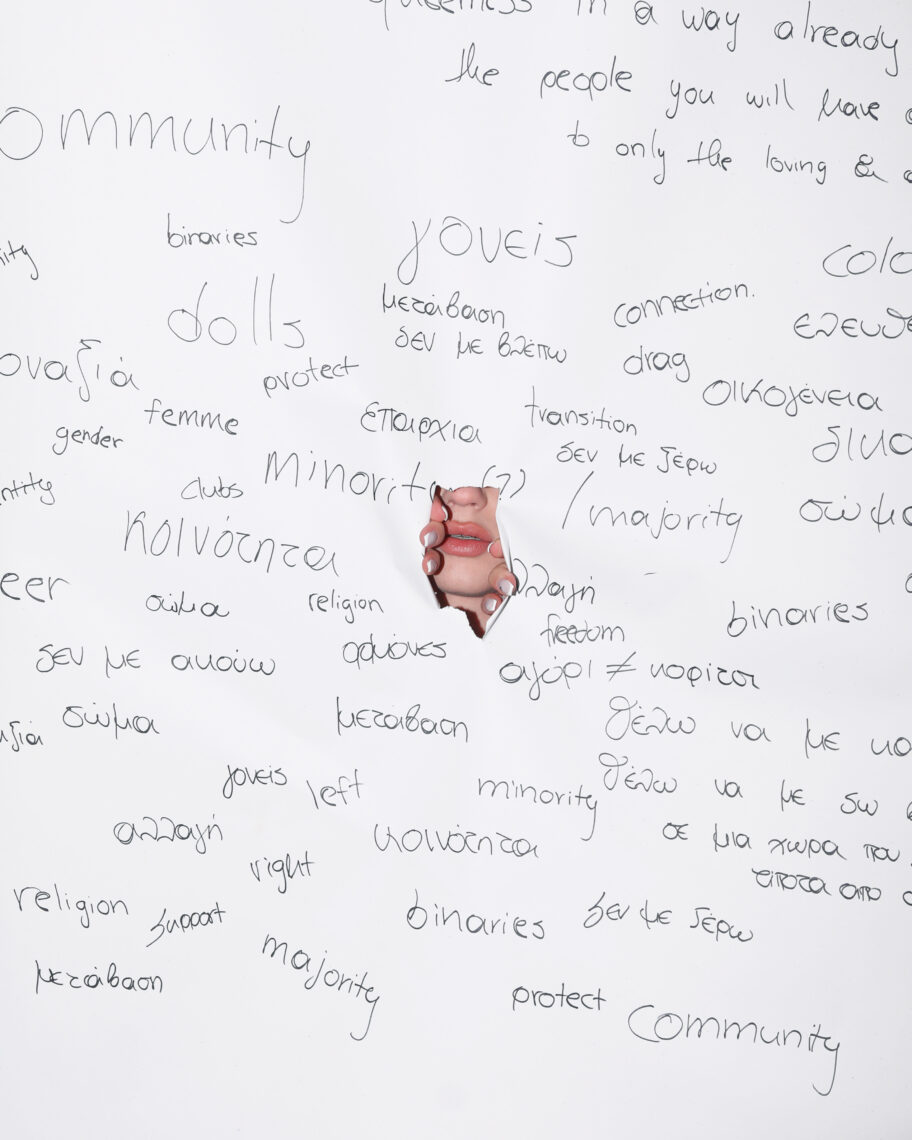 in a way already
the people you will have
to only the loving &
ommunity
binaries
γονείς
colo
dolls
μετάβαση
connection.
δεν με βλέπω
ελευθε
drag
οναξιά
protect
οικογένεια
femme
επαρχία
transition
gender
δεν με ξέρω
δικα
minority (?)
/majority
clubs
ntity
σώμα
κοινότητα
eer
σώμα
religion
λλαγή
freedom
binaries
δεν με ακούω
ορμόνες
αγόρι ≠ κορίτσι
σώμα
μετάβαση
θέλω να με κο
αξιά
γονείς
left
minority
θέλω να με δω
αλλαγή
κοινότητα
σε μια χώρα που
right
τίποτα από
religion
support
binaries
δεν με ξέρω
majority
μετάβαση
protect
community